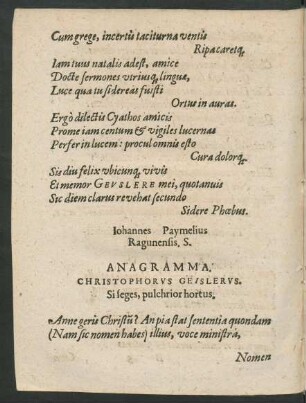 Cum grege, incertùs taciturna ventùs
Ripa caretq́,
Iam tuus natalis adest, amice
Docte sermones vtriusq́, linguæ,
Luce qua tu sidereat fuisti
Ortus in auras.
Ergò dilectis Cyathos amicis
Prome iam centum & vigiles lucernas
Perfer in lucem: procul omnis esto
Cura dolorq́.
Sis diu felix vbicunq́, vivis
Et memor GEVSLERE mei, quotanuis
Sic diem clarus revehat secundo
Sidere Phœbus.
Iohannes Paymelius
Ragunensis, S.
ANAGRAMMA.
CHRISTOPHORVS GEISLERVS.
Si seges, pulchrior hortus,
Anne geris Christũ? An pia stat sententia quondam
(Nam sic nomen habes) illius, voce ministrâ,
Nomen